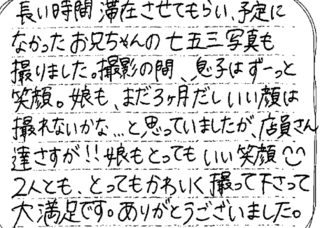 長い時間滞在させてもらい、予定に
なかったお兄ちゃんの七五三写真も
撮りました。撮影の間、息子はずーっと
笑顔。娘も、まだ3ヶ月だしいい顔は
撮れないかな…と思っていましたが、店員さん
達さすが!!娘もとってもいい笑顔
2人とも、とってもかわいく撮って下さって
大満足です。ありがとうございました。